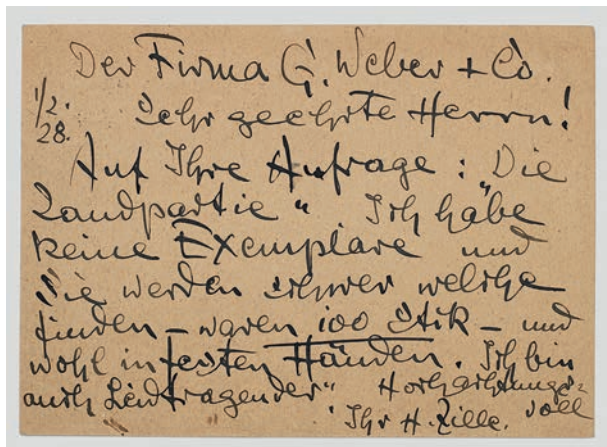 Der Firma G. Weber + Co.
1/2. 28.
Sehr geehrte Herrn!
Auf Ihre Anfrage: „Die
Landpartie“ Ich habe
keine Exemplare und
Sie werden schwer welche
finden – waren 100 Stck – und
wohl in festen Händen. Ich bin
auch Leidtragender“ Hochachtungs=
voll
Ihr H. Zille.